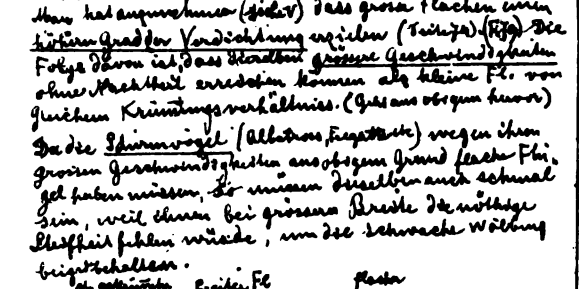 Man hat anzunehmen (siehe V) dass grosse Flächen einen
höhern Grad der Verdichtung erzielen (Seite 72). (Fig) Die
Folge davon ist, dass dieselben grössere Geschwindigkeiten
ohne Nachtheil erreichen können als kleine Fl. von
gleichem Krümmungsverhältniss. (Geht aus obigem hervor)
Da die Sturmvögel (Albatross, Fregatte etc) wegen ihren
grossen Geschwindigkeiten aus obigem Grund flache Flü-
gel haben müssen, So müssen dieselben auch schmal
sein, weil ihnen bei grösserer Breite die nöthige
Steifheit fehlen würde, um die schwache Wölbung
beizubehalten.
breiter Fl flacher